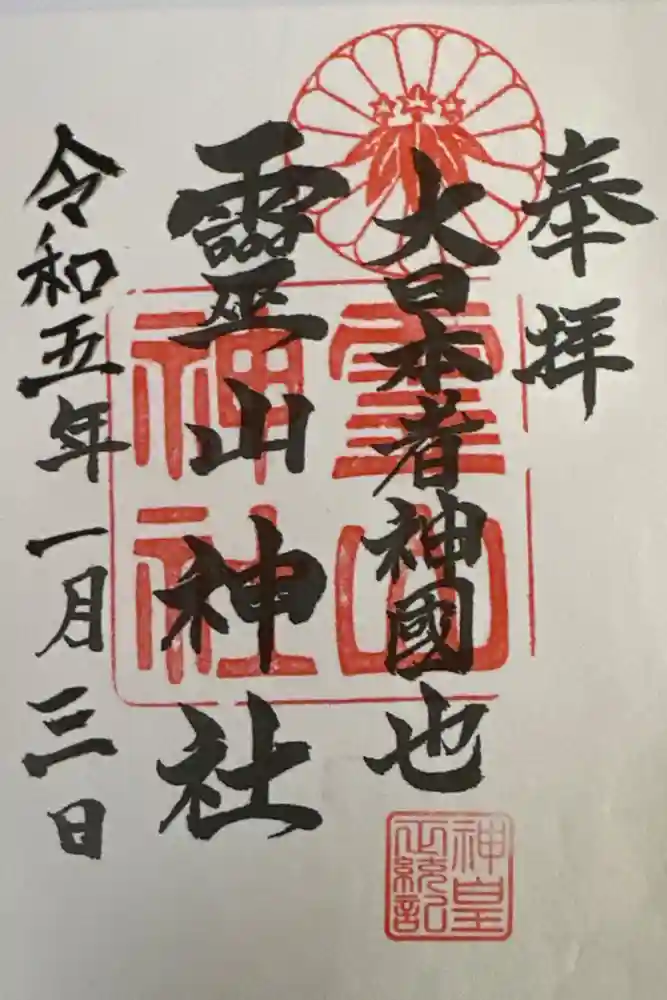 奉拝
大日本者神國也
靈山神社
令和五年一月三日
霊山神社
神皇正統記